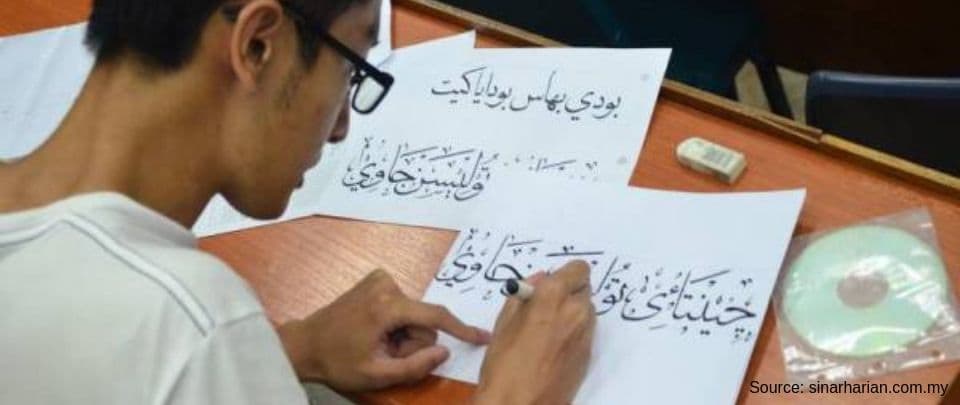 بودي بهاس بودايا كيت
توليسن جاوي
چينتاءي جاوي
Source: sinarharian.com.my